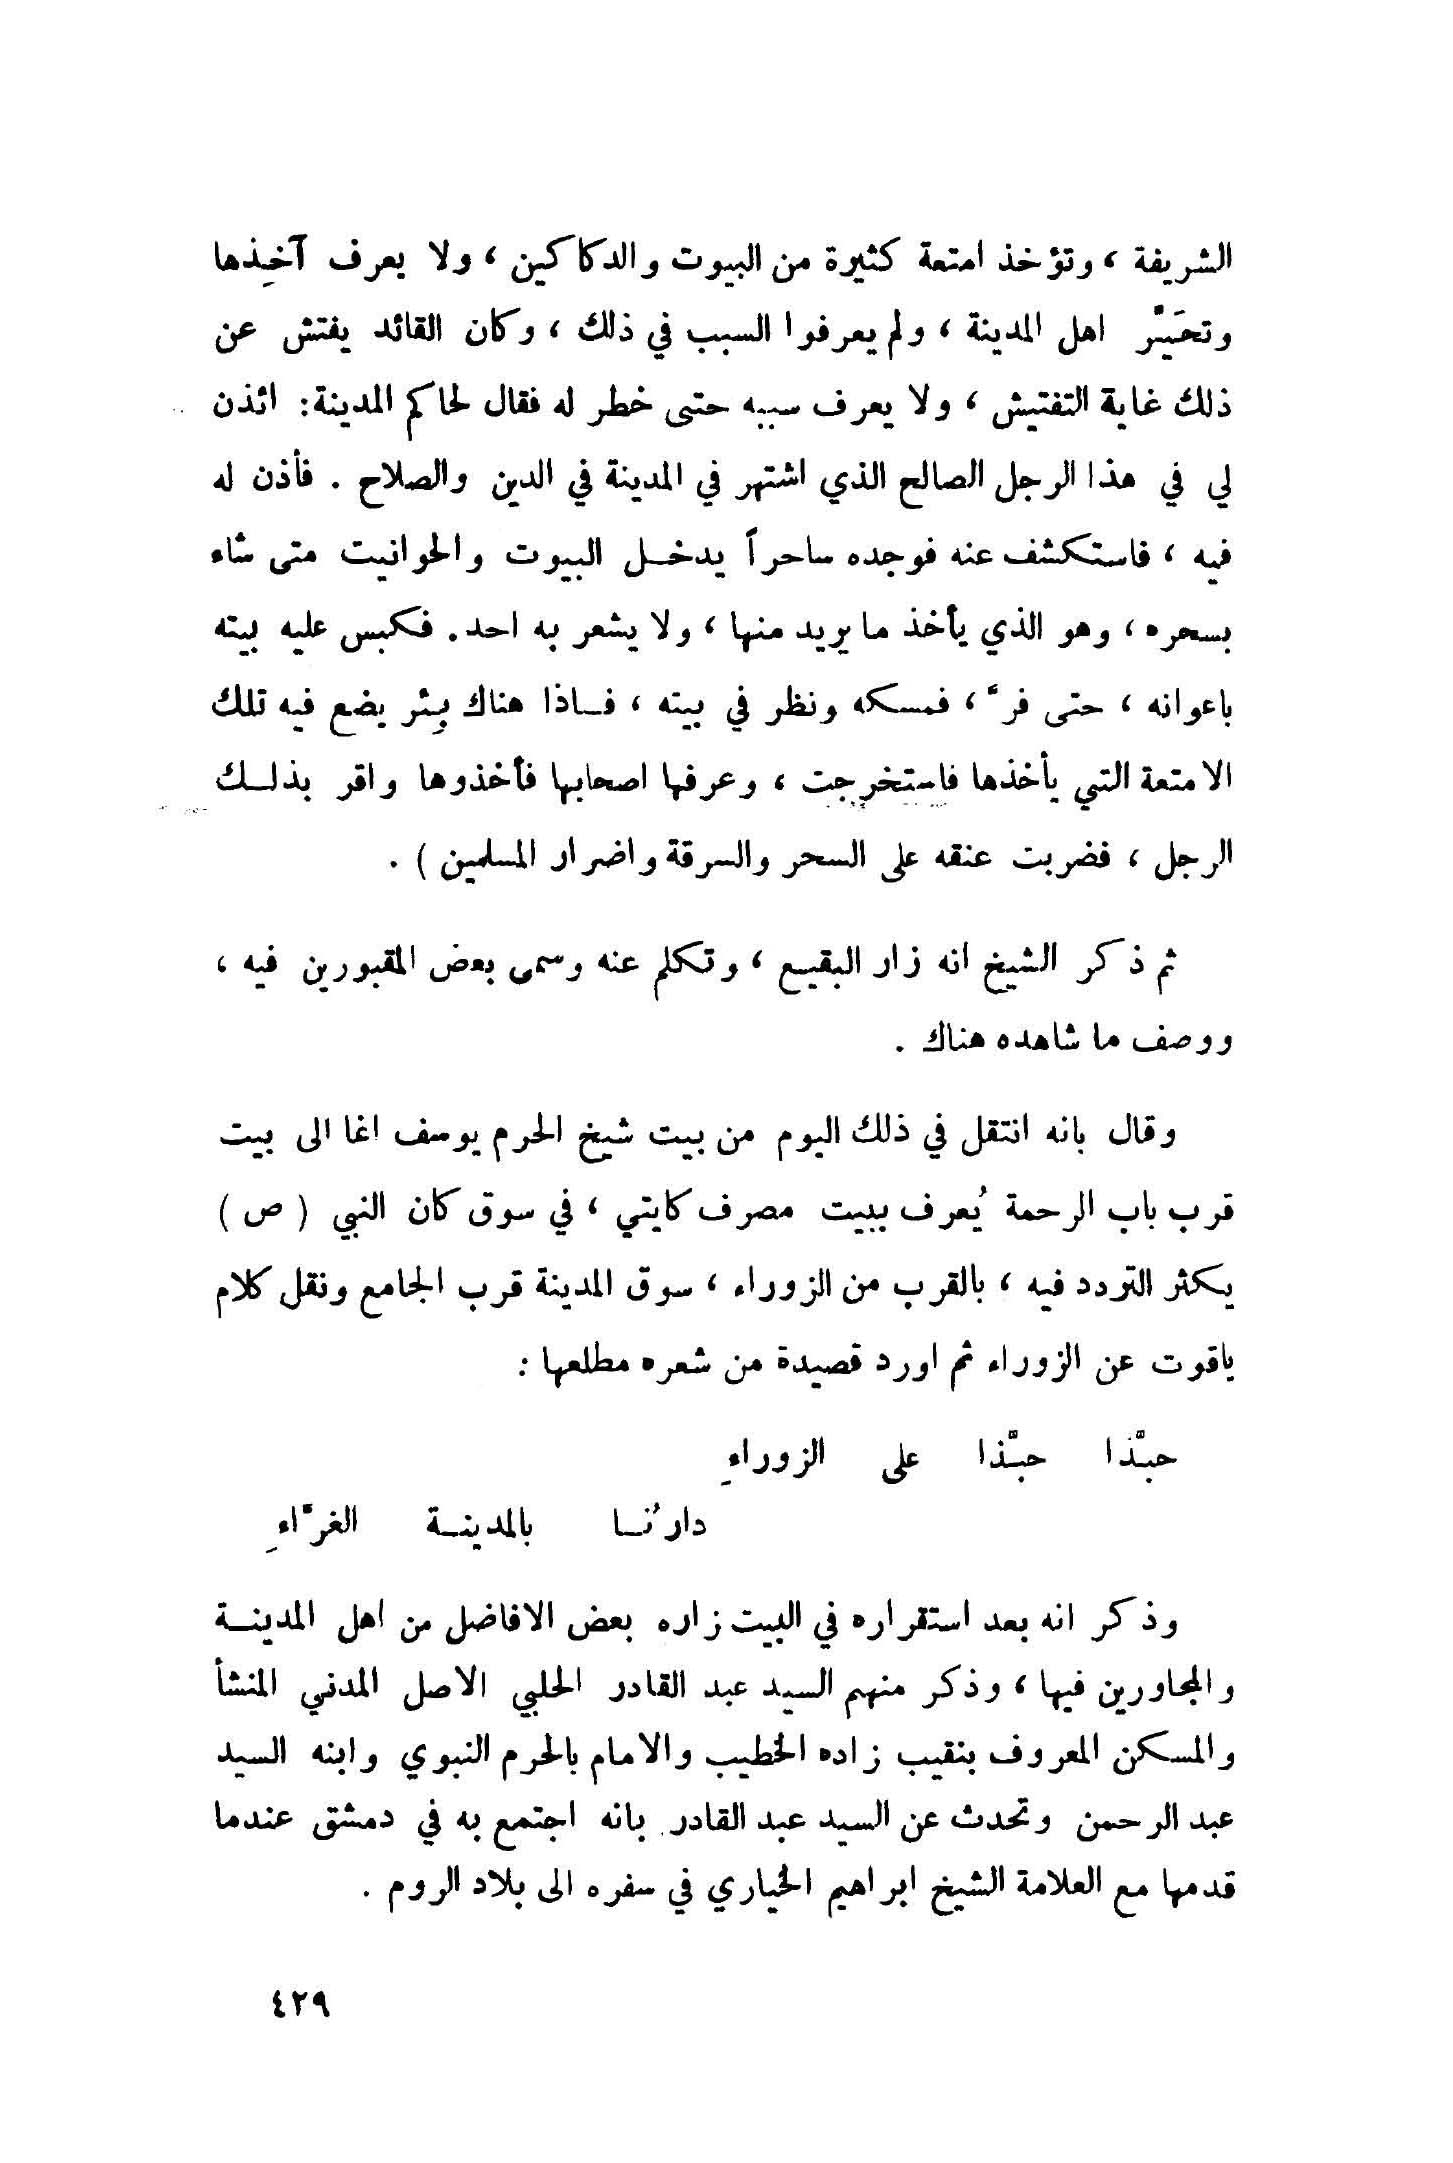 الشريفة ، وتؤخذ امتعة كثيرة من البيوت والدكاكين ، ولا يعرف آخِذها
وتحَيَّر اهل المدينة ، ولم يعرفوا السبب في ذلك ، وكان القائد يفتش عن
ذلك غاية التفتيش ، ولا يعرف سببه حتى خطر له فقال لحاكم المدينة: ائذن
لي في هذا الرجل الصالح الذي اشتهر في المدينة في الدين والصلاح . فأذن له
فيه ، فاستكشف عنه فوجده ساحراً يدخل البيوت والحوانيت متى شاء
بسحره ، وهو الذي يأخذ ما يريد منها ، ولا يشعر به احد. فكبس عليه بيته
باعوانه ، حتى فرَّ ، فمسكه ونظر في بيته ، فاذا هناك بِئر يضع فيه تلك
الامتعة التي يأخذها فاستخرجت ، وعرفها اصحابها فأخذوها واقر بذلك
الرجل ، فضربت عنقه على السحر والسرقة واضرار المسلمين ) .
ثم ذكر الشيخ انه زار البقيع ، وتكلم عنه وسمى بعض المقبورين فيه ،
ووصف ما شاهده هناك .
وقال بانه انتقل في ذلك اليوم من بيت شيخ الحرم يوسف اغا الى بيت
قرب باب الرحمة يُعرف ببيت مصرف كايتي ، في سوق كان النبي ( ص )
يكثر التردد فيه ، بالقرب من الزوراء ، سوق المدينة قرب الجامع ونقل كلام
ياقوت عن الزوراء ثم اورد قصيدة من شعره مطلعها :
حبَّذا حبَّذا على الزوراءِ
دارُنا بالمدينة الغرَّاءِ
وذكر انه بعد استقراره في البيت زاره بعض الافاضل من اهل المدينة
والمجاورين فيها ، وذكر منهم السيد عبد القادر الحلبي الاصل المدني المنشأ
والمسكن المعروف بنقيب زاده الخطيب والامام بالحرم النبوي وابنه السيد
عبد الرحمن وتحدث عن السيد عبد القادر بانه اجتمع به في دمشق عندما
قدمها مع العلامة الشيخ ابراهيم الخياري في سفره الى بلاد الروم .
٤٢٩